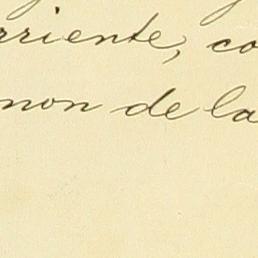 rriente, co
non de la